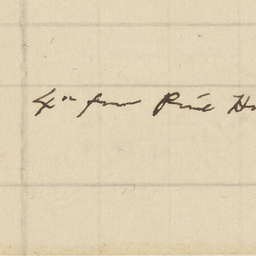 4" from Pine H